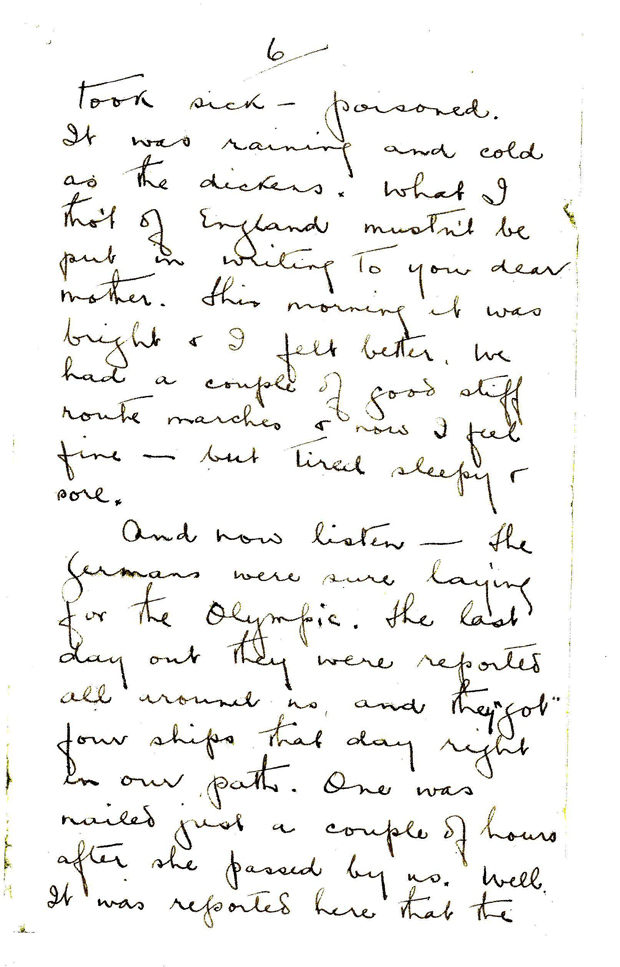 6
Took sick — poisoned.
It was raining and cold
as the dickens. What I
tho't of England mustn't be
put in writing to you dear
mother. This morning it was
bright & I felt better. We
had a couple of good stiff
route marches & now I feel
fine — but tired sleepy &
sore.
And now listen — The
Germans were sure laying
for the Olympic. The last
day out they were reported
all around us, and they "got"
four ships that day right
in our path. One was
nailed just a couple of hours
after she passed by us. Well.
It was reported here that the